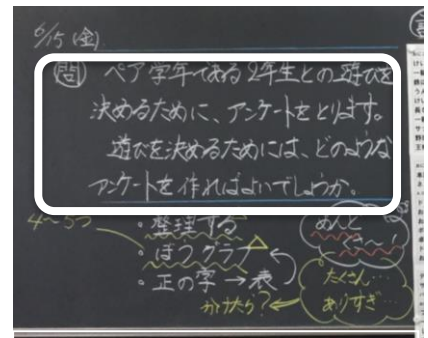 6/15 (金)
問 ペア学年である2年生との遊びを
決めるために、アンケートをとります。
遊びを決めるためには、どのような
アンケートを作ればよいでしょうか。
4~5つ
・整理する
・ぼうグラフ
・正の字→表
かけたら?
めんど
くさ~!
たくさん…
ありすぎ…